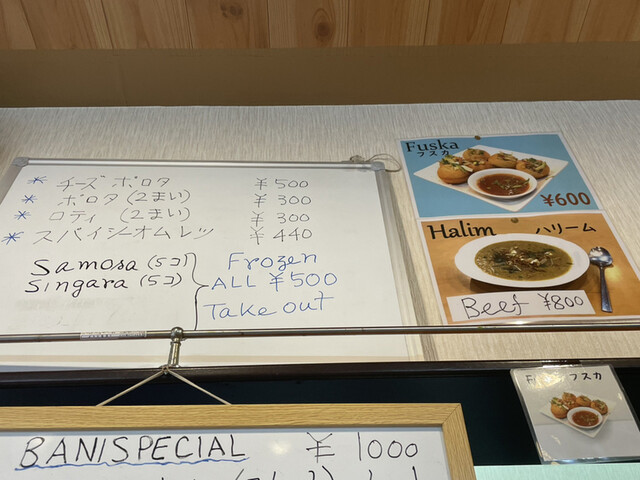 * チーズ ポロタ ¥500
* ポロタ (2まい) ¥300
* ロティ (2まい) ¥300
* スパイシーオムレツ ¥440
Samosa (5コ)
Singara (5コ)
Frozen
ALL ¥500
Take out
Fuska
フスカ
¥600
Halim ハリーム
Beef ¥800
フスカ
BANISPECIAL ¥1000